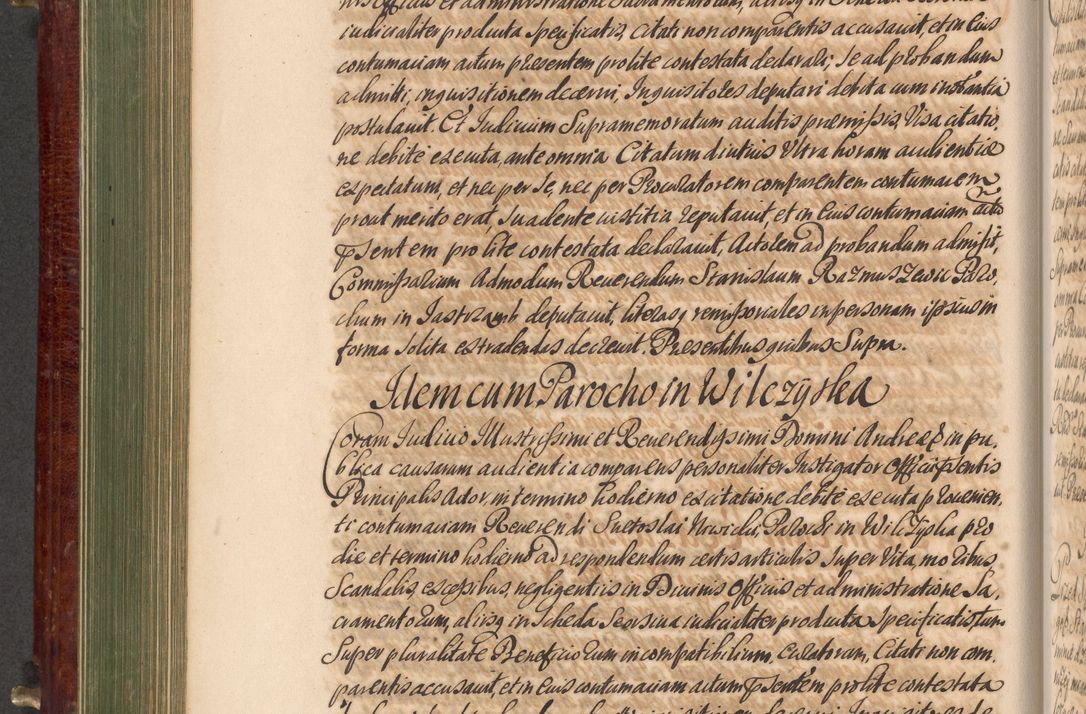 iudicialiter producta specificatis, Citati non comparentis accusauit, et in Eius
contumaciam actum presentem pro lite contestata declarari; Se ad probandum
admitti, inquisitionem decerni, Inquisitores deputari debita cum instantia
postulauit. Et Iudicium Supramemoratum auditis præmissis, Visa citatio,
ne debitè executa, ante omnia Citatum diutius Vltra horam audientiæ
expectatum, et nec per Se, nec per Procuratorem comparentem contumacem
prout merito erat, Suadente iustitia reputauit, et in Eius contumaciam actũ
pſentem pro lite contestata declarauit, Actorem ad probandum admisit,
Commissarium Admodum Reuerendum Stanislaum Razmuszewic Paro,
chum in Jastrzmb deputauit, literasq remissoriales in personam ipsius in
forma solita extradendas decreuit. Presentibus quibus Supra.
Idem cum Parocho in Wilczÿska
Coram Iudicio Illustrissimi et Reuerendissimi Domini Andreæ in pu,
blica causarum audientia comparens personaliter Instigator Officii pſentis
Principalis Actor, in termino hodierno ex citatione debitè executa prouenien,
ti contumaciam Reuerendi Suetoslai Parochi in Wilczÿska pro
die et termino hodierno ad respondendum certis articulis Super Vita, moribus,
Scandalis, excessibus, negligentiis in Diuinis Officiis et administratione Sa,
cramentorum, aliisq in Scheda Seorsiua iudicialiter producta Specificatis, tum
Super pluralitate Beneficiorum incompatibilium, Curatorum, Citati non com,
parentis accusauit, et in Eius contumaciam actum pſentẽm pro lite contestata